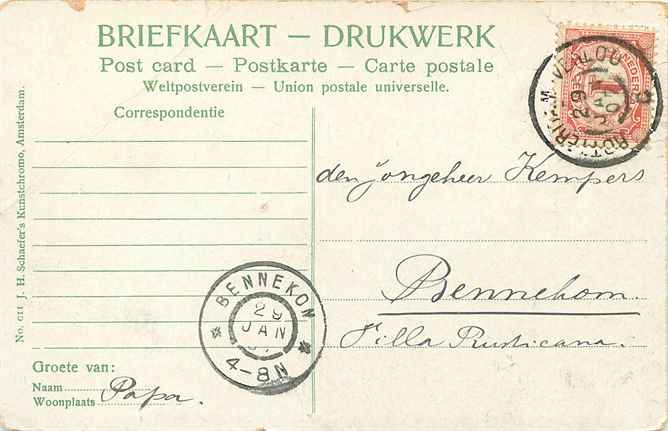 BRIEFKAART — DRUKWERK
Post card — Postkarte — Carte postale
Weltpostverein — Union postale universelle.
Correspondentie
No. G11 J. H. Schaefer's Kunstchromo, Amsterdam.
NEDER
1
VENLOU
ROTTERD
29
den jongeheer Kempers
Bennekom.
Villa Rusticana.
BENNEKOM
29
JAN
4-8N
Groete van:
Naam
Papa.
Woonplaats